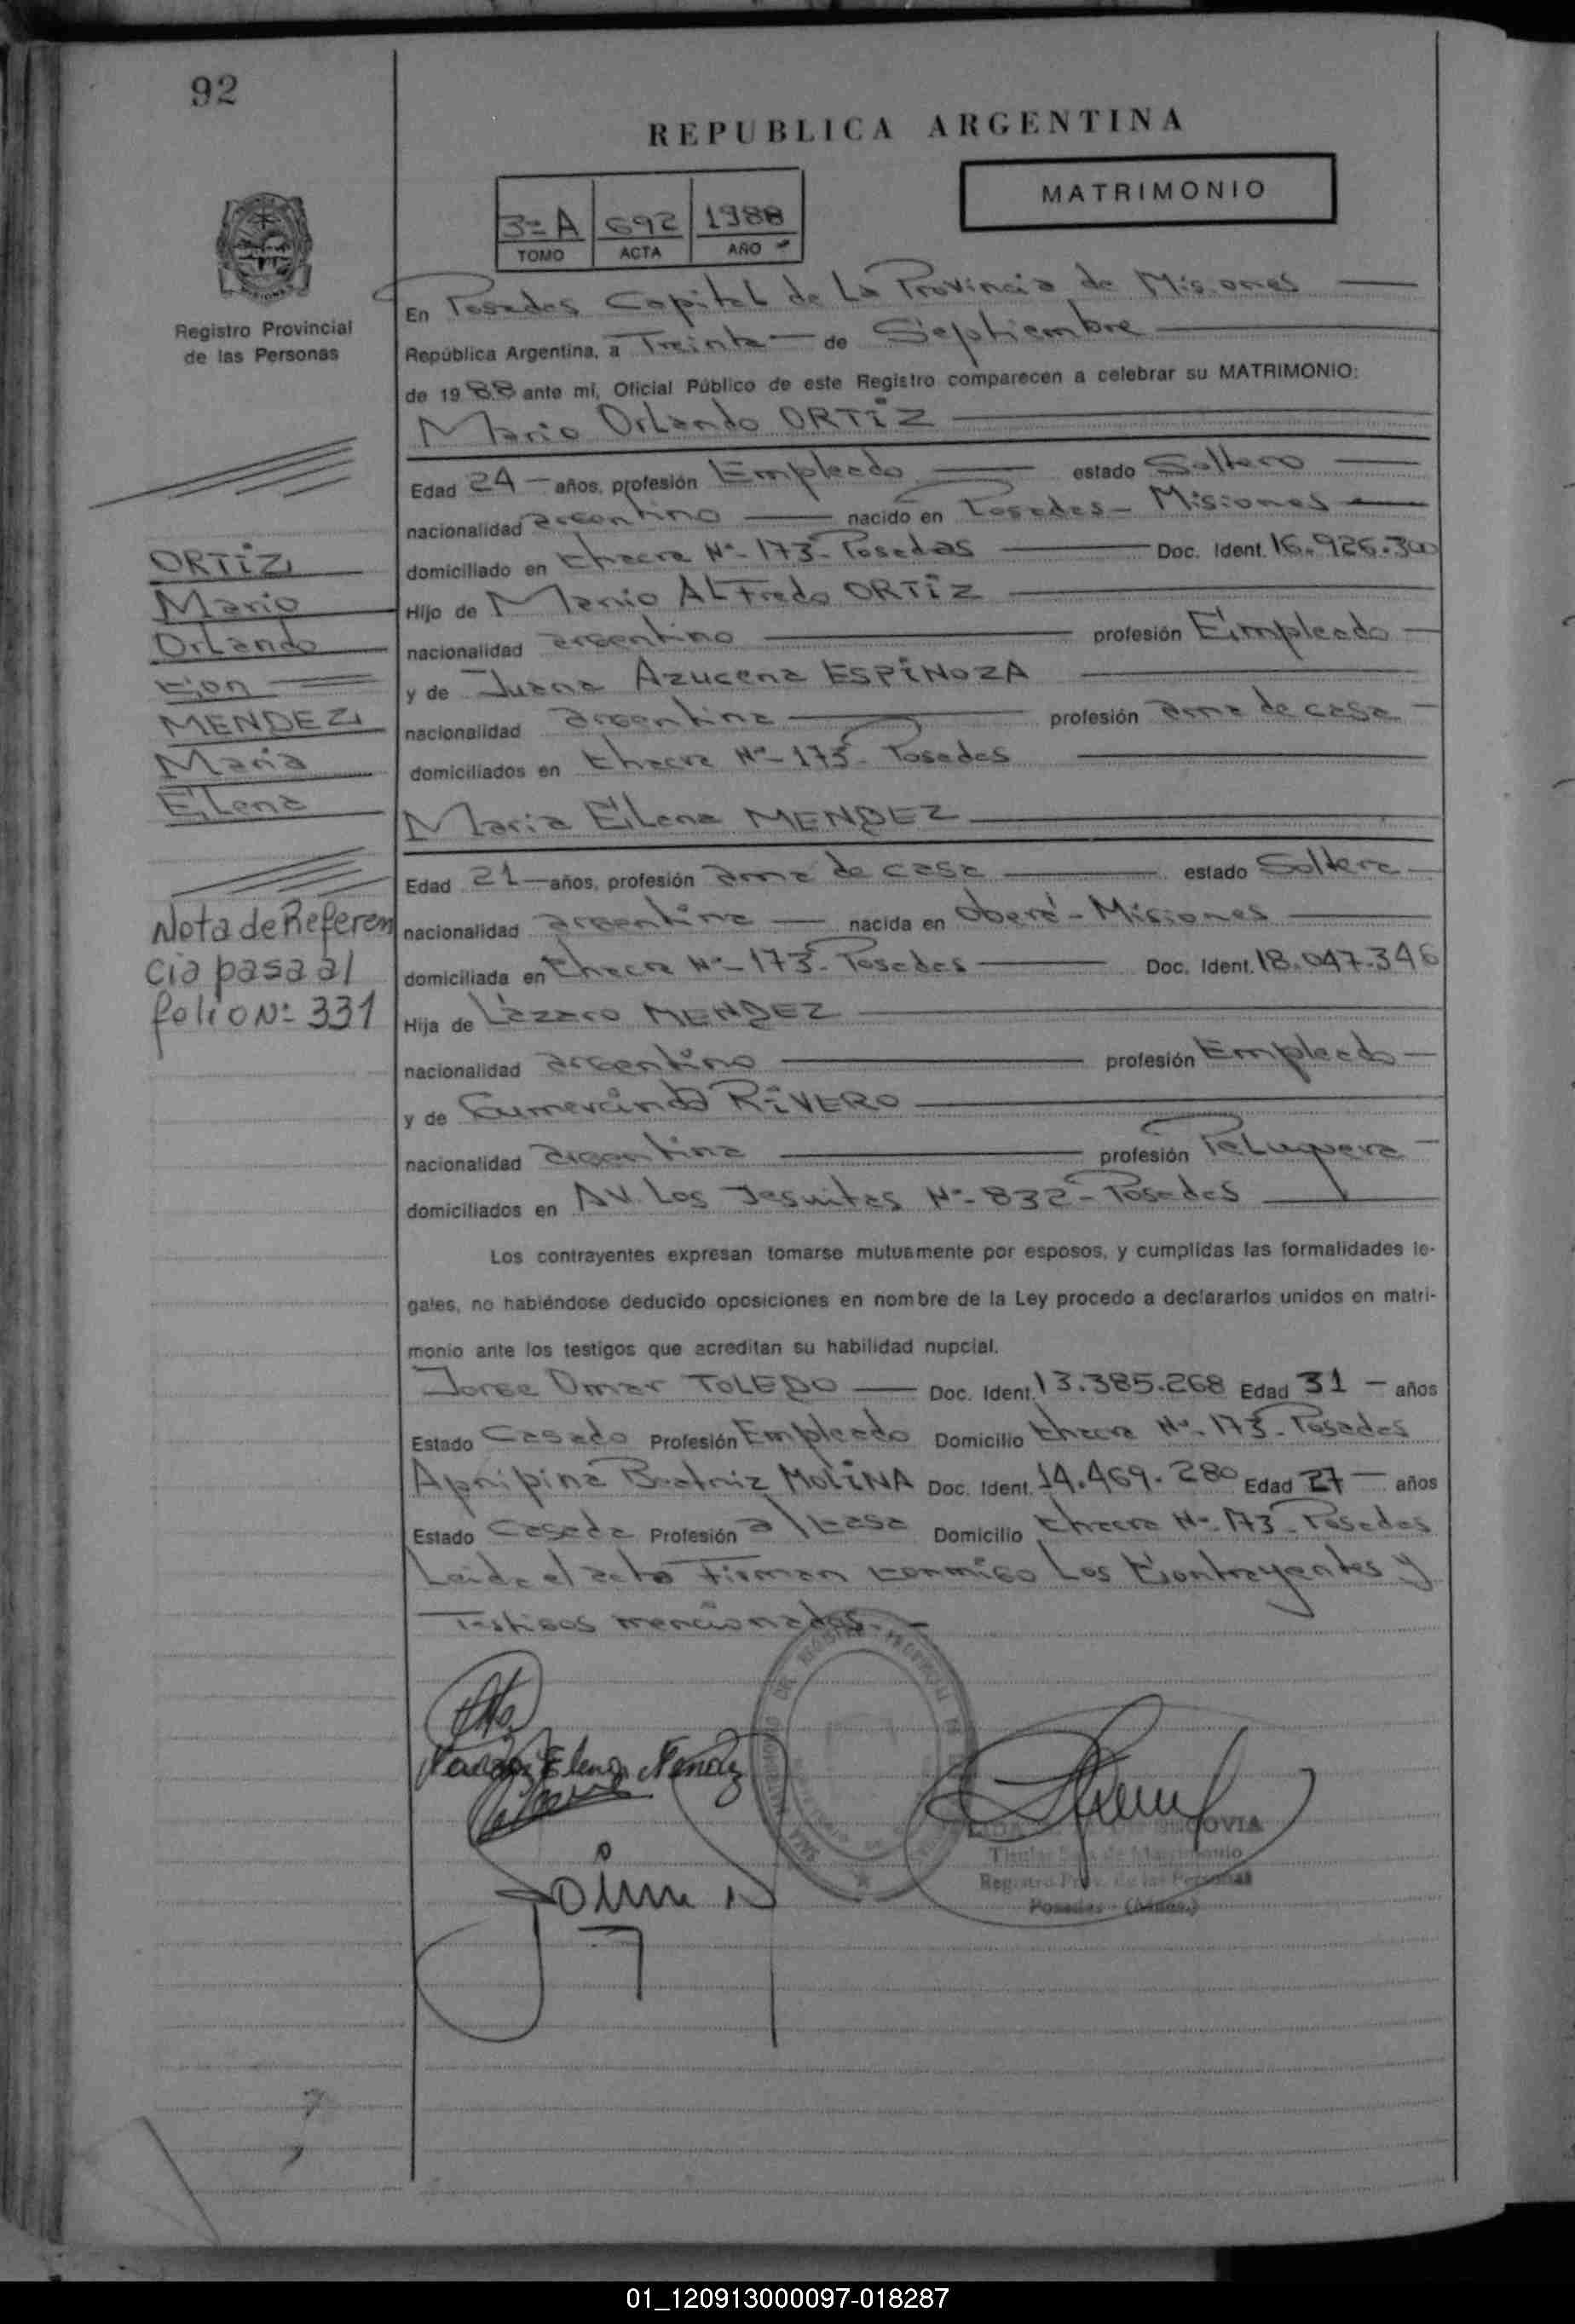 92
REPUBLICA ARGENTINA
MATRIMONIO
3ª A 692 1988
TOMO ACTA AÑO
MISIONES
Registro Provincial
de las Personas
En Posadas Capital de La Provincia de Misiones
República Argentina, a Treinta de Septiembre
de 1988 ante mí, Oficial Público de este Registro comparecen a celebrar su MATRIMONIO:
Mario Orlando ORTIZ
Edad 24 años, profesión Empleado estado Soltero
nacionalidad argentino nacido en Posadas - Misiones
domiciliado en Chacra Nº 173 - Posadas Doc. Ident. 16.926.300
Hijo de Mario Alfredo ORTIZ
nacionalidad argentino profesión Empleado
y de Juana Azucena ESPINOZA
nacionalidad argentina profesión ama de casa
domiciliados en Chacra Nº 173 - Posadas
María Elena MENDEZ
Edad 21 años, profesión ama de casa estado Soltera
nacionalidad argentina nacida en Oberá - Misiones
domiciliada en Chacra Nº 173 - Posadas Doc. Ident. 18.047.346
Hija de Lázaro MENDEZ
nacionalidad argentino profesión Empleado
y de Gumercinda RIVERO
nacionalidad argentina profesión Peluquera
domiciliados en AV. Los Jesuitas Nº 832 - Posadas
ORTIZ
Mario
Orlando
Con
MENDEZ
María
Elena
Nota de Referen
cia pasa al
folio Nº 331
Los contrayentes expresan tomarse mutuamente por esposos, y cumplidas las formalidades le-
gales, no habiéndose deducido oposiciones en nombre de la Ley procedo a declararlos unidos en matri-
monio ante los testigos que acreditan su habilidad nupcial.
Jorge Omar TOLEDO Doc. Ident. 13.385.268 Edad 31 años
Estado Casado Profesión Empleado Domicilio Chacra Nº 173 - Posadas
Beatriz MOLINA Doc. Ident. 14.469.280 Edad 27 años
Estado Casada Profesión a/casa Domicilio Chacra Nº 173 - Posadas
Leida el acta Firman conmigo Los Contrayentes y
Testigos mencionados.-
María Elena Mendez
SEGOVIA
Titular Sala de Matrimonio
Registro Prov. de las Personas
Posadas - (Mnes.)
01_120913000097-018287